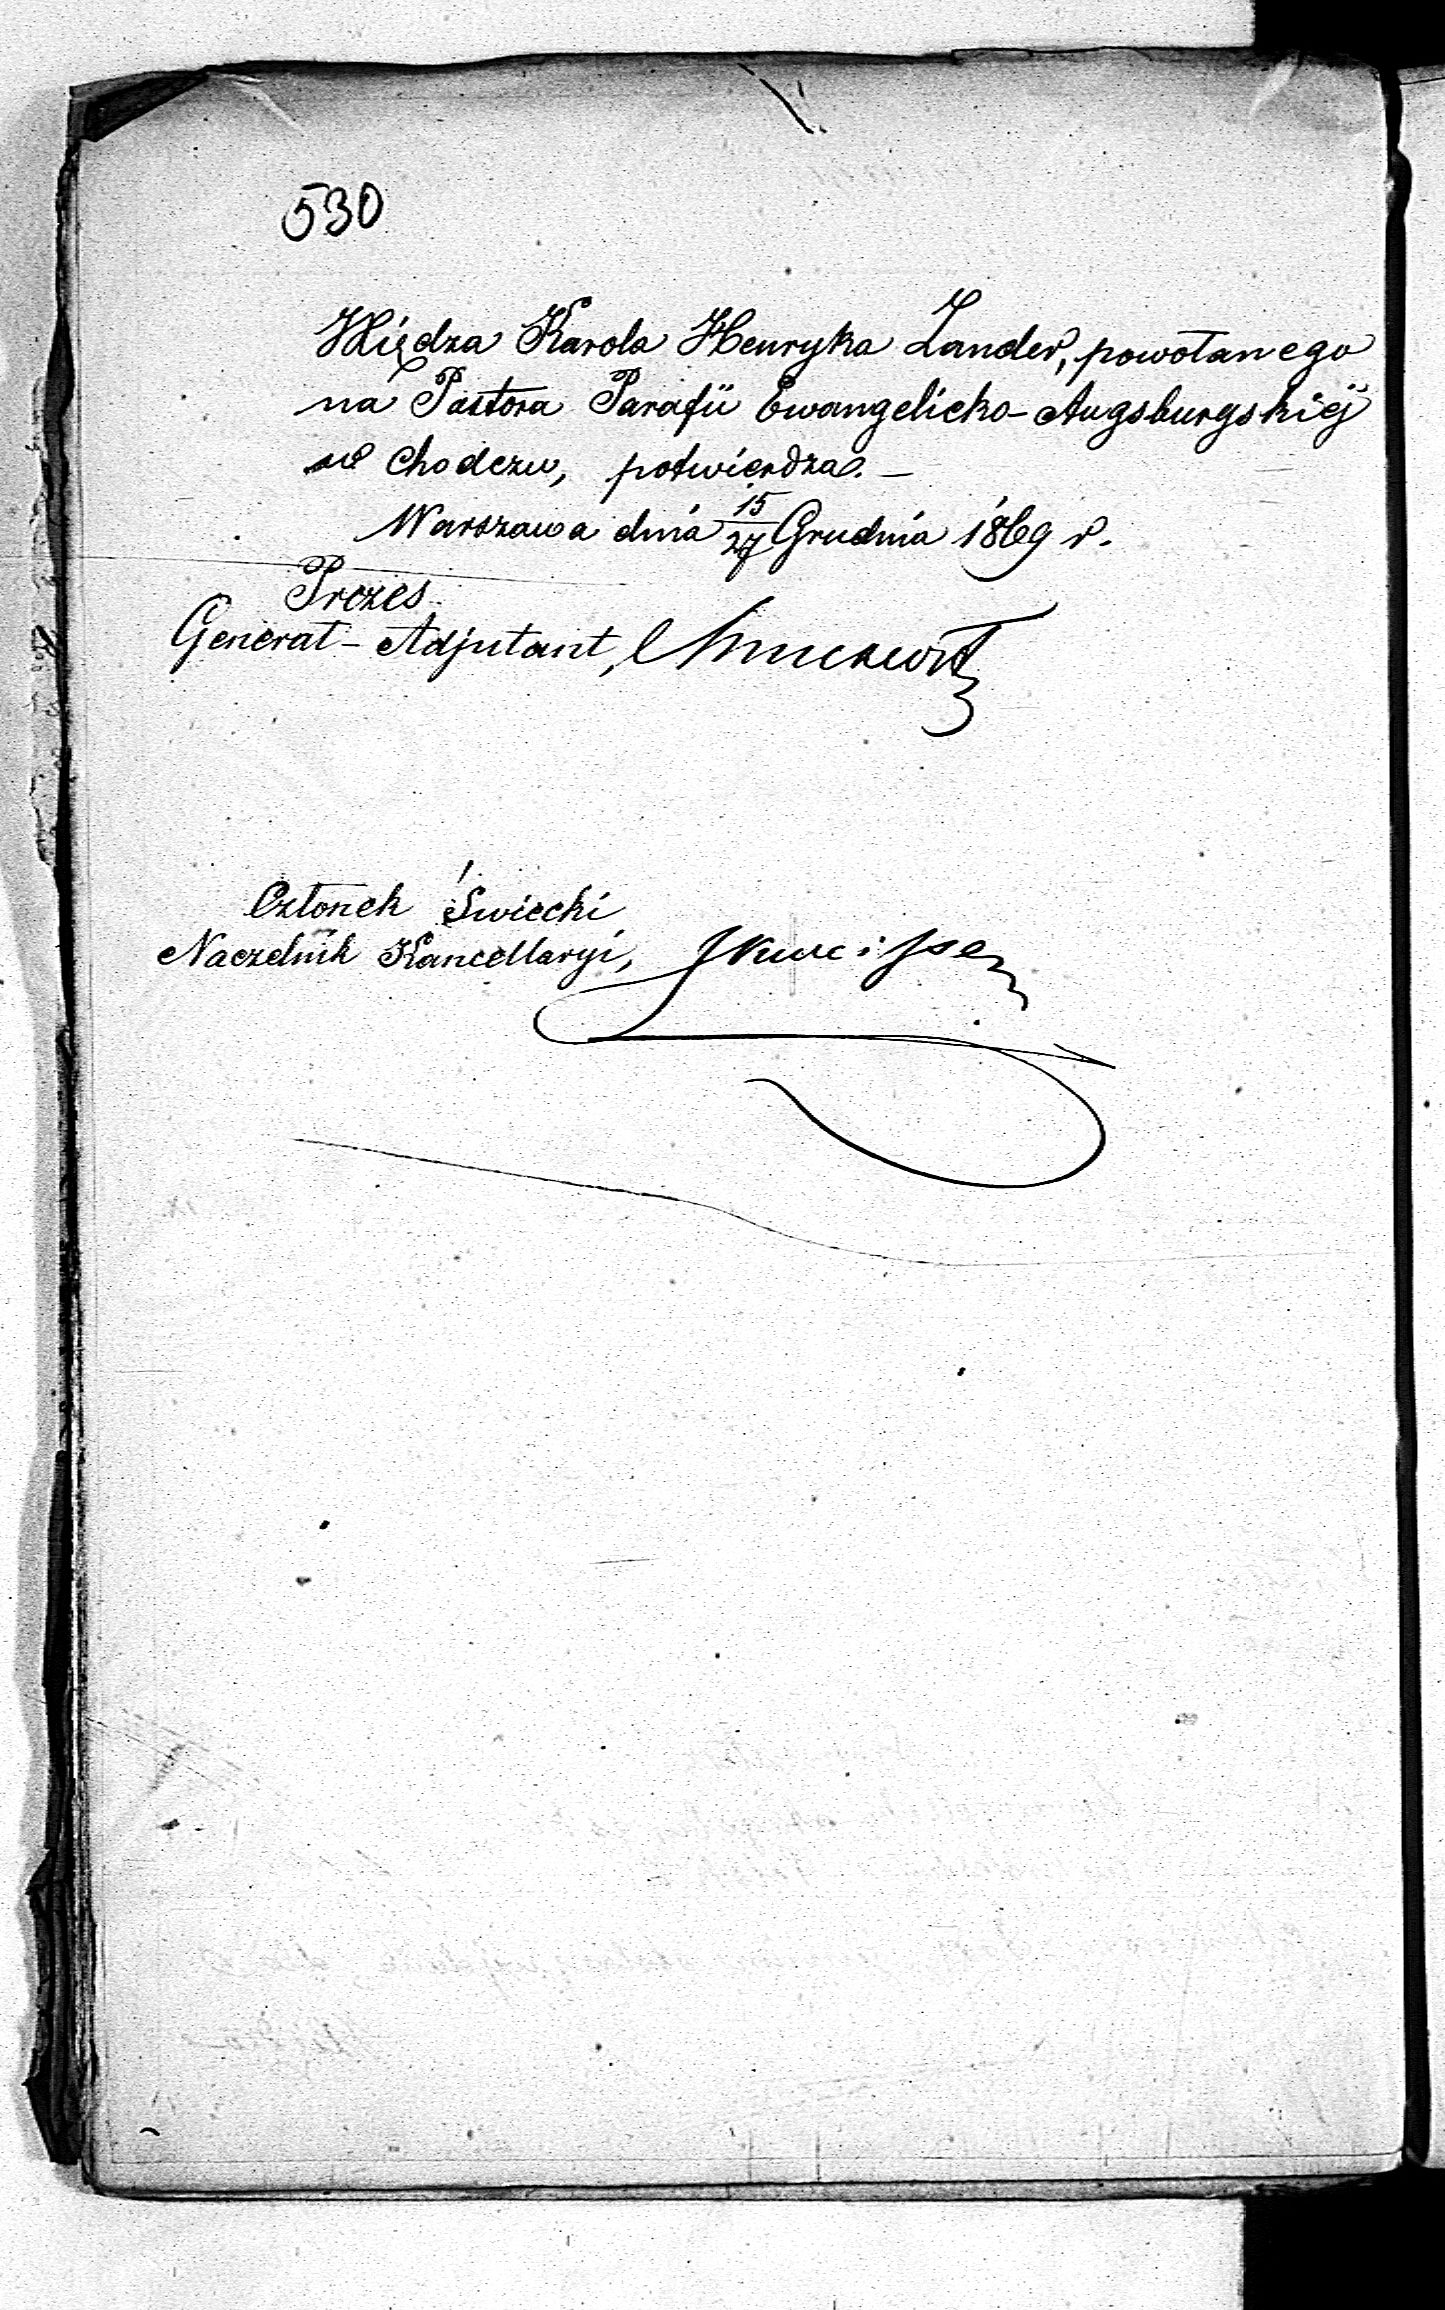 530
Xiędza Karola Henryka Zander, powołanego
na Pastora Parafii Ewangelicko-Augsburgskiéj
w Chodczu, potwierdza. —
Warszawa dnia 15/27 Grudnia 1869 r.
Prezes
Generał-Adjutant,
Członek Świecki
Naczelnik Kancellaryi,